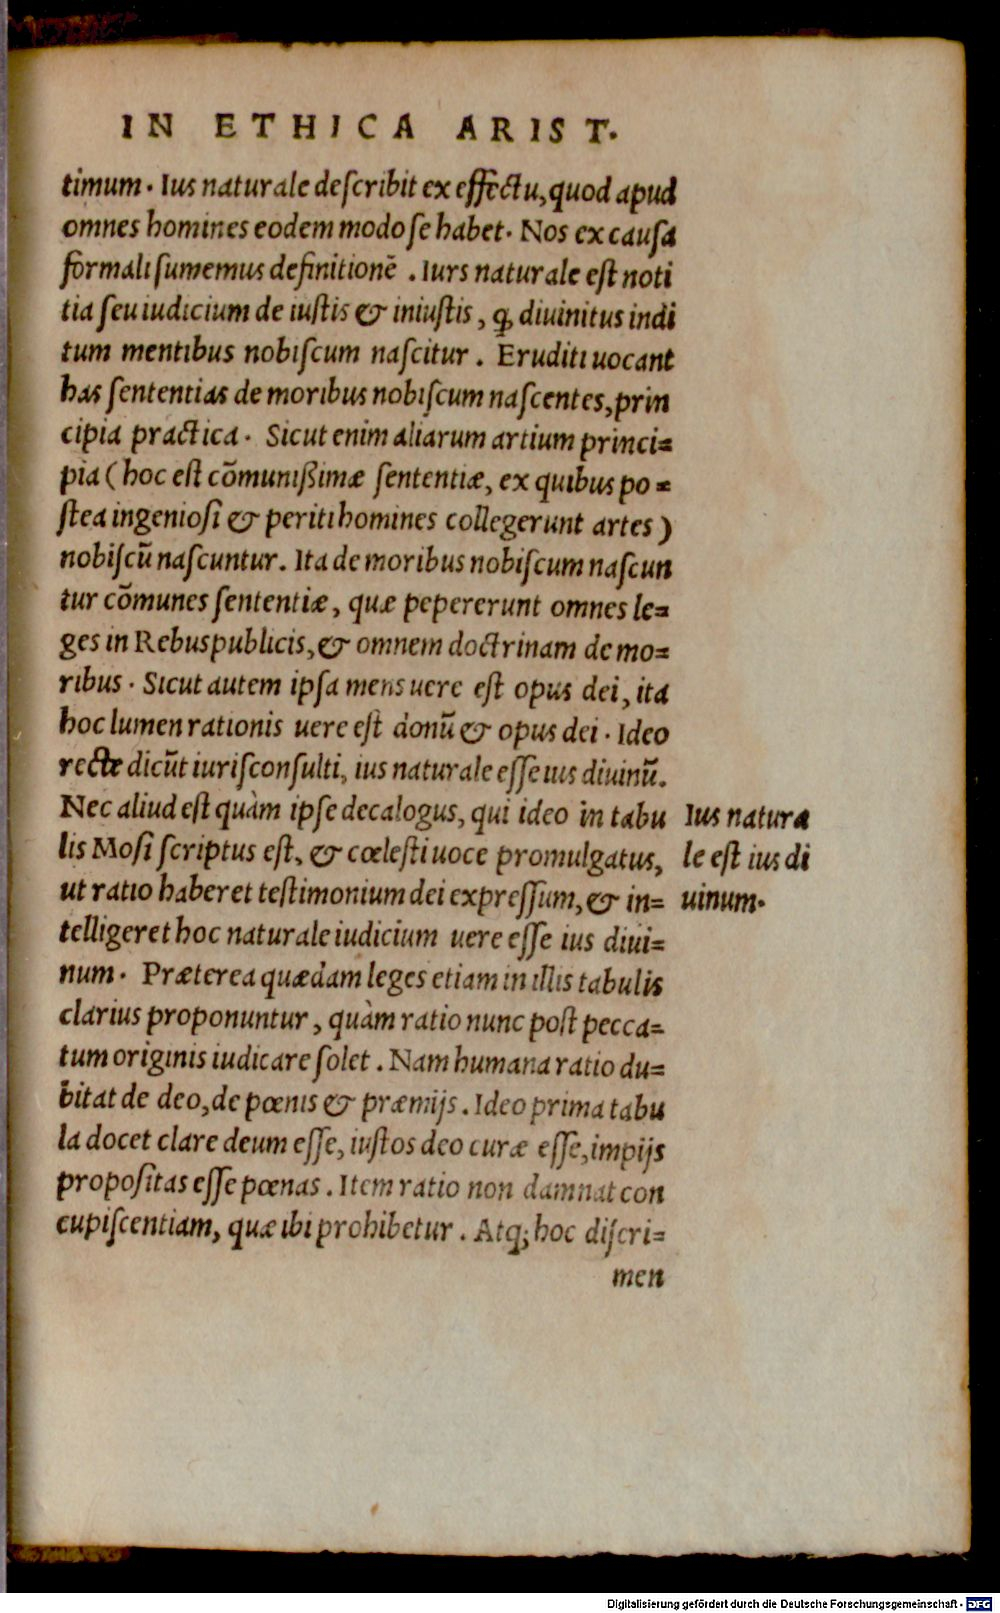 IN ETHICA ARIST.
timum. Ius naturale deſcribit ex effectu, quod apud
omnes homines eodem modo ſe habet. Nos ex cauſa
formali ſumemus definitionē. Iurs naturale eſt noti
tia ſeu iudicium de iuſtis & iniuſtis, ꝙ diuinitus indi
tum mentibus nobiſcum naſcitur. Eruditi uocant
has ſententias de moribus nobiſcum naſcentes, prin
cipia practica. Sicut enim aliarum artium princi=
pia (hoc eſt cōmunißimæ ſententiæ, ex quibus po=
ſtea ingenioſi & periti homines collegerunt artes)
nobiſcū naſcuntur. Ita de moribus nobiſcum naſcun
tur cōmunes ſententiæ, quæ pepererunt omnes le=
ges in Rebuspublicis, & omnem doctrinam de mo=
ribus. Sicut autem ipſa mens uere eſt opus dei, ita
hoc lumen rationis uere eſt donū & opus dei. Ideo
recte dicūt iuriſconſulti, ius naturale eſſe ius diuinū.
Nec aliud eſt quàm ipſe decalogus, qui ideo in tabu
lis Moſi ſcriptus eſt, & cœleſti uoce promulgatus,
ut ratio haberet teſtimonium dei expreſſum, & in=
telligeret hoc naturale iudicium uere eſſe ius diui=
num. Præterea quædam leges etiam in illis tabulis
clarius proponuntur, quàm ratio nunc poſt pecca=
tum originis iudicare ſolet. Nam humana ratio du=
bitat de deo, de pœnis & præmijs. Ideo prima tabu
la docet clare deum eſſe, iuſtos deo curæ eſſe, impijs
propoſitas eſſe pœnas. Item ratio non damnat con
cupiſcentiam, quæ ibi prohibetur. Atq; hoc diſcri=
men
Ius natura
le eſt ius di
uinum.
Digitalisierung gefördert durch die Deutsche Forschungsgemeinschaft - DFG